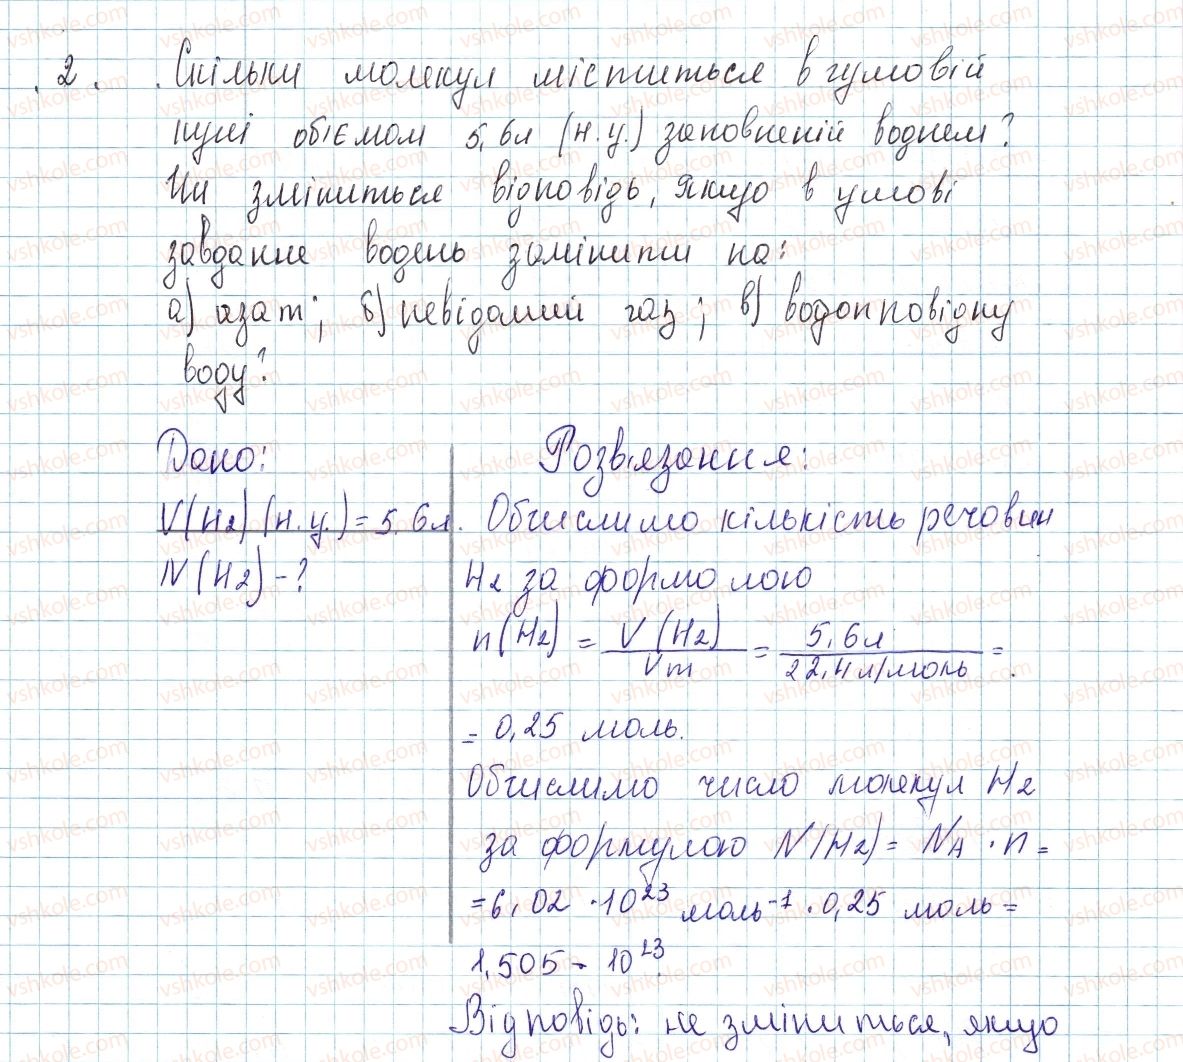 2. Скільки молекул міститься в гумовій
кулі об'ємом 5,6л (н.у.) заповненій воднем?
Чи зміниться відповідь, якщо в умові
завдання водень замінити на:
а) азот; б) невідомий газ; в) водопровідну
воду?
Дано:
V(H2) (н.у.) = 5,6л.
N(H2) - ?
Розв'язання:
Обчислимо кількість речовин
H2 за формолою
n(H2) = V(H2)/Vm = 5,6л/22,4л/моль =
= 0,25 моль.
Обчислимо число молекул H2
за формулою N(H2) = NA · n =
= 6,02 · 10²³ моль⁻¹ · 0,25 моль =
1,505 · 10²³
Відповідь: не зміниться, якщо
vshkole.com